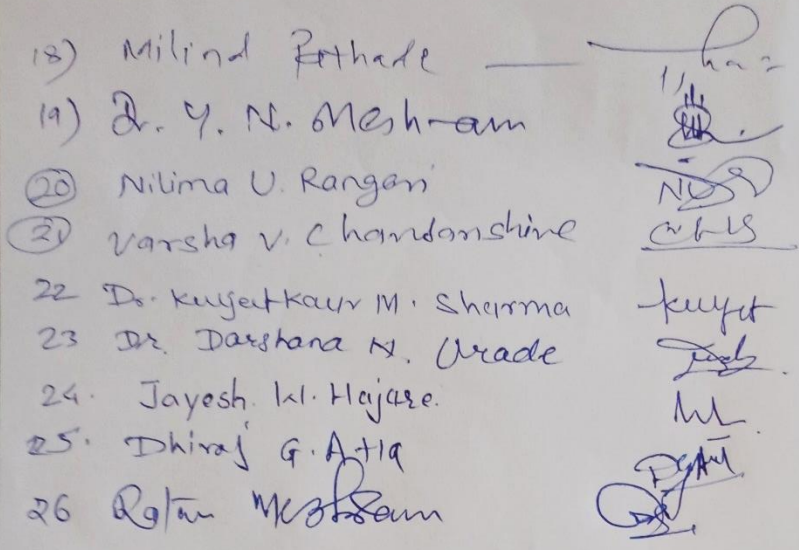 18) Milind Rathade
19) Dr. Y. N. Meshram
20 Nilima U. Rangari
21 Varsha V. Chandanshive
22 Dr. Kuljeetkaur M. Sharma Kuljet
23 Dr. Darshana N. Urade
24. Jayesh W. Hajare.
25. Dhiraj G. Atla DGAtl
26 Ratan Meshram